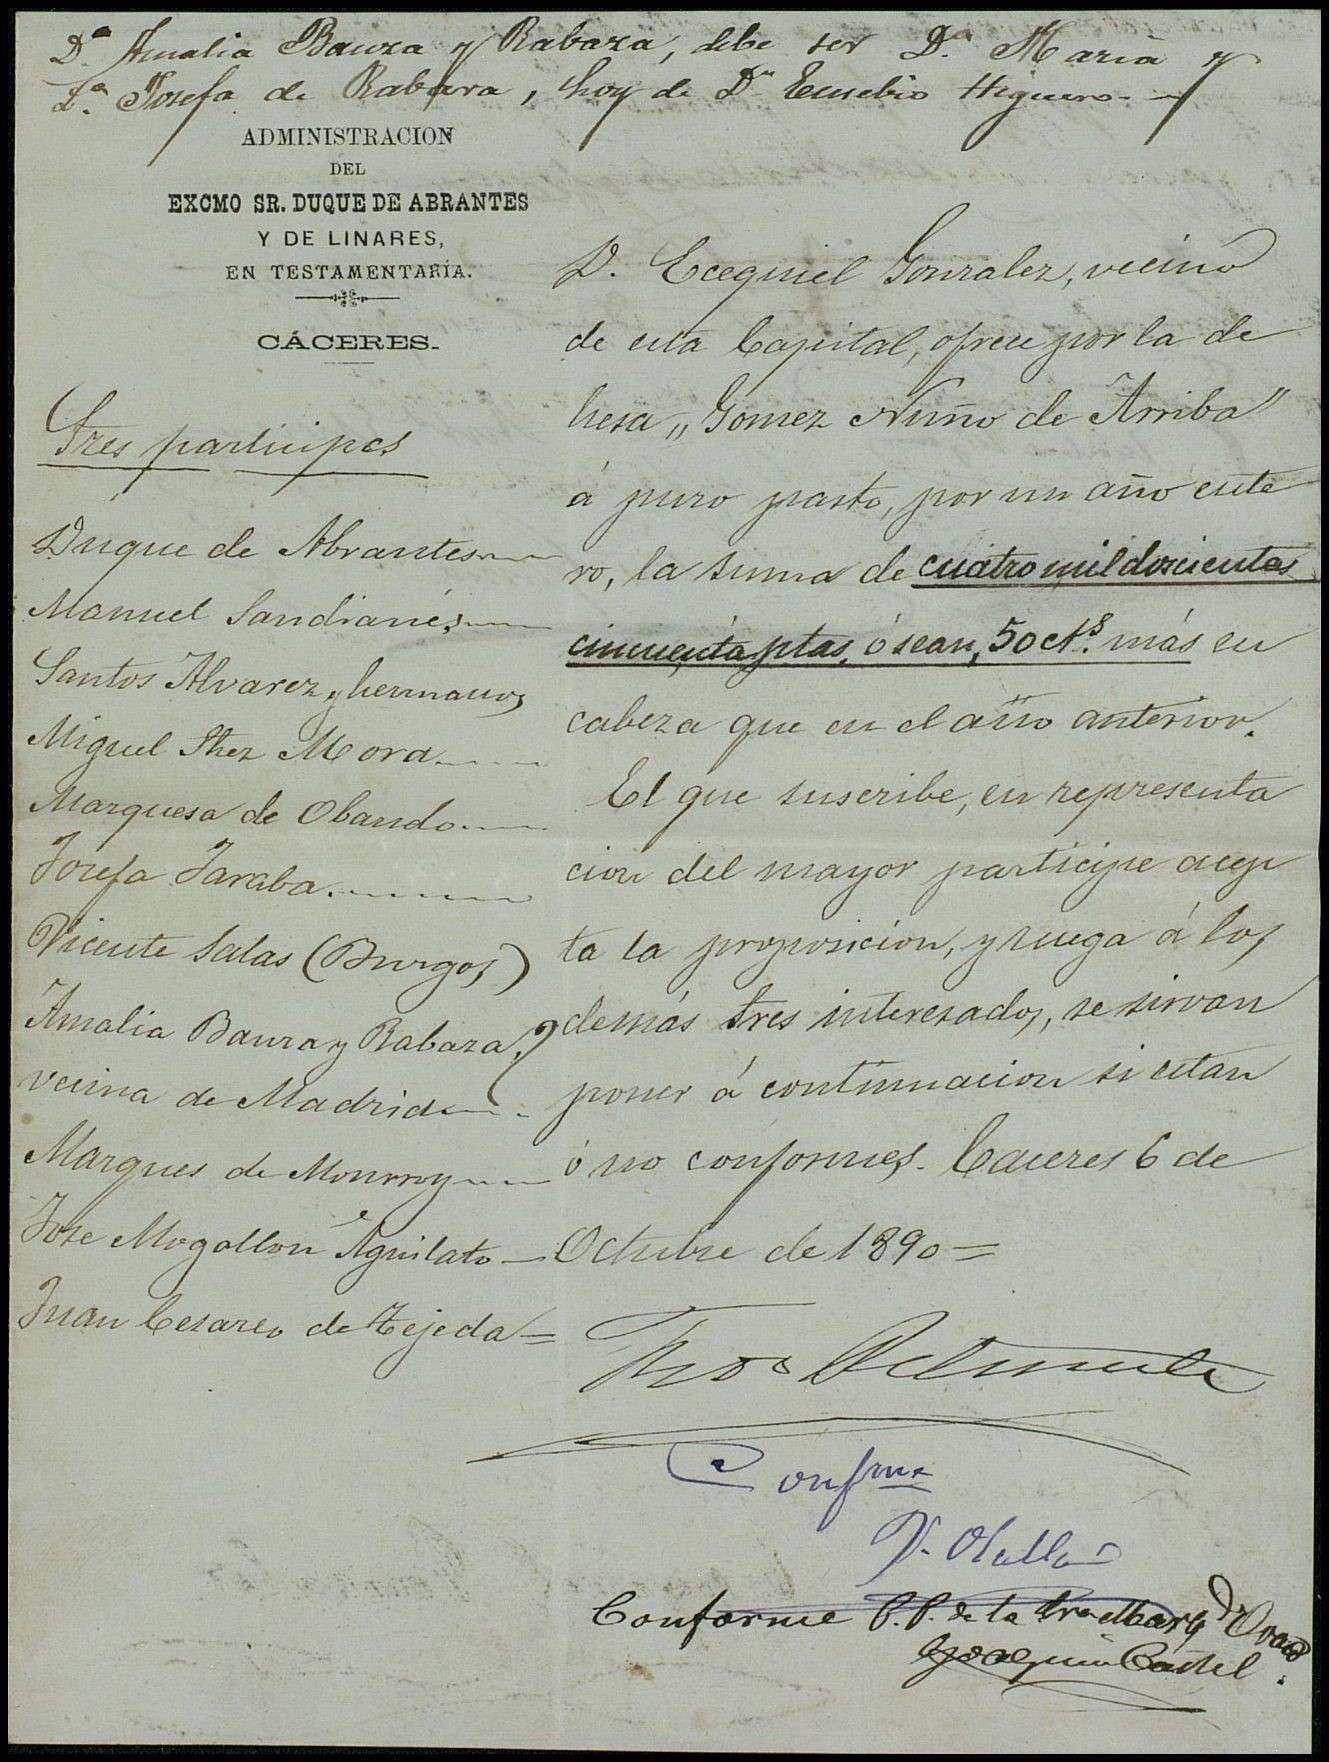 Dª Amalia Bauza y Rabaza, debe ser Dª Maria y
Dª Josefa de Rabaza, hoy de Dn Eusebio Higuero.
ADMINISTRACION
DEL
EXCMO SR. DUQUE DE ABRANTES
Y DE LINARES,
EN TESTAMENTARÍA.
CÁCERES.
Tres participes
Duque de Abrantes
Manuel Sandianes
Santos Alvarez y hermanos
Miguel Shez Mora
Marquesa de Obando
Josefa Jaraba
Vicente Salas (Burgos)
Amalia Bauza y Rabaza,?
vecina de Madrid
Marques de Monrroy
Jose Mogollon Aguilato
Juan Cesareo de Tejeda
D. Ecequiel Gonzalez, vecino
de esta Capital, ofrece por la de
hesa "Gomez Nuño de Arriba"
á puro pasto, por un año ente
ro, la suma de cuatro mil doscientas
cincuenta ptas. ó sean, 50 cts. más en
cabeza que en el año anterior.
El que suscribe, en representa
cion del mayor participe acep
ta la proposicion, y ruega á los
demás tres interesados, se sirvan
poner á continuacion si estan
ó no conformes. Caceres 6 de
Octubre de 1890=
Conforme
Conforme P.P. de la Sra Marqª de Ovando
Joaquin Castel.